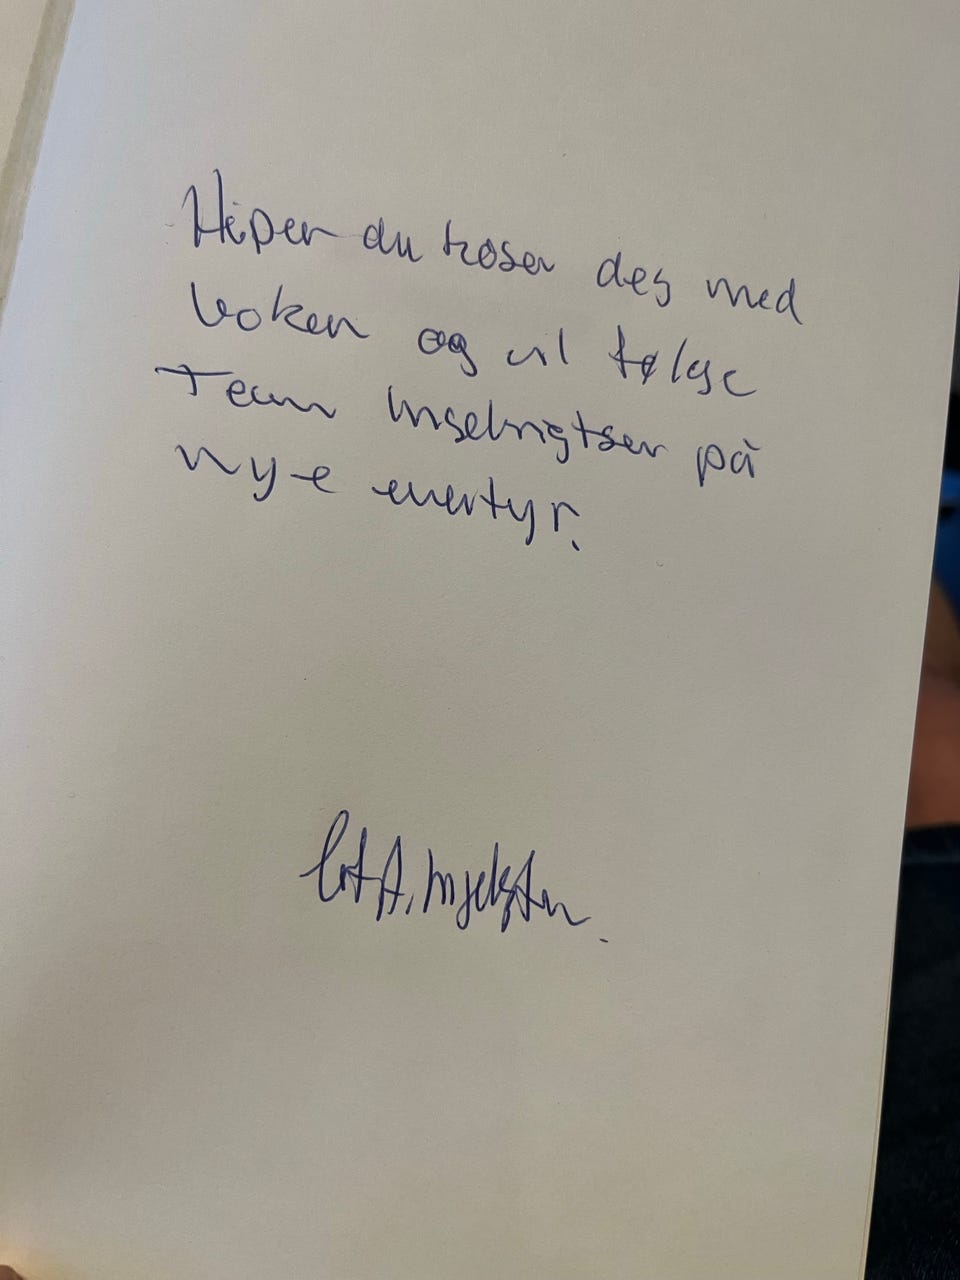 Håper du koser deg med
boken og vil følge
Team på
nye eventyr.